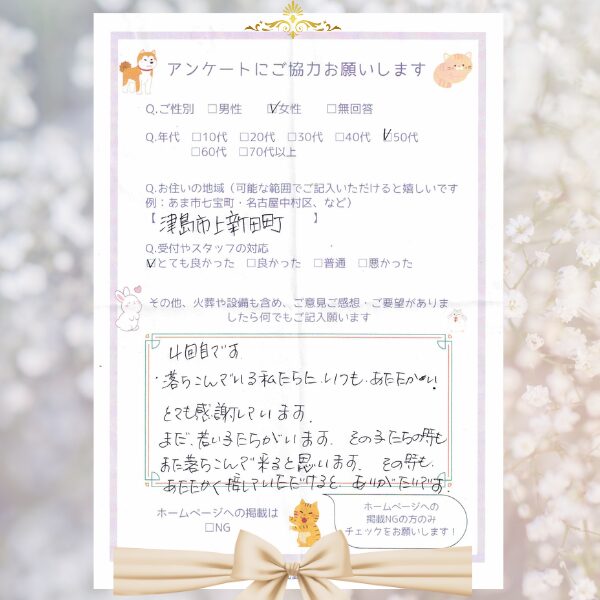 アンケートにご協力お願いします
Q.ご性別 □男性 ☑女性 □無回答
Q.年代 □10代 □20代 □30代 □40代 ☑50代
□60代 □70代以上
Q.お住いの地域（可能な範囲でご記入いただけると嬉しいです
例：あま市七宝町・名古屋中村区、など）
【 津島市上新田町 】
Q.受付やスタッフの対応
☑とても良かった □良かった □普通 □悪かった
その他、火葬や設備も含め、ご意見ご感想・ご要望がありま
したら何でもご記入願います
4回目です
・落ちこんでいる私たちに、いつも、あたたかい
とても感謝しています。
まだ、若い子たちがいます。その子たちの時も
また落ちこんで来ると思います。その時も、
あたたかく接していただけると、ありがたいです。
ホームページへの掲載は
□NG
ホームページへの
掲載NGの方のみ
チェックをお願いします！